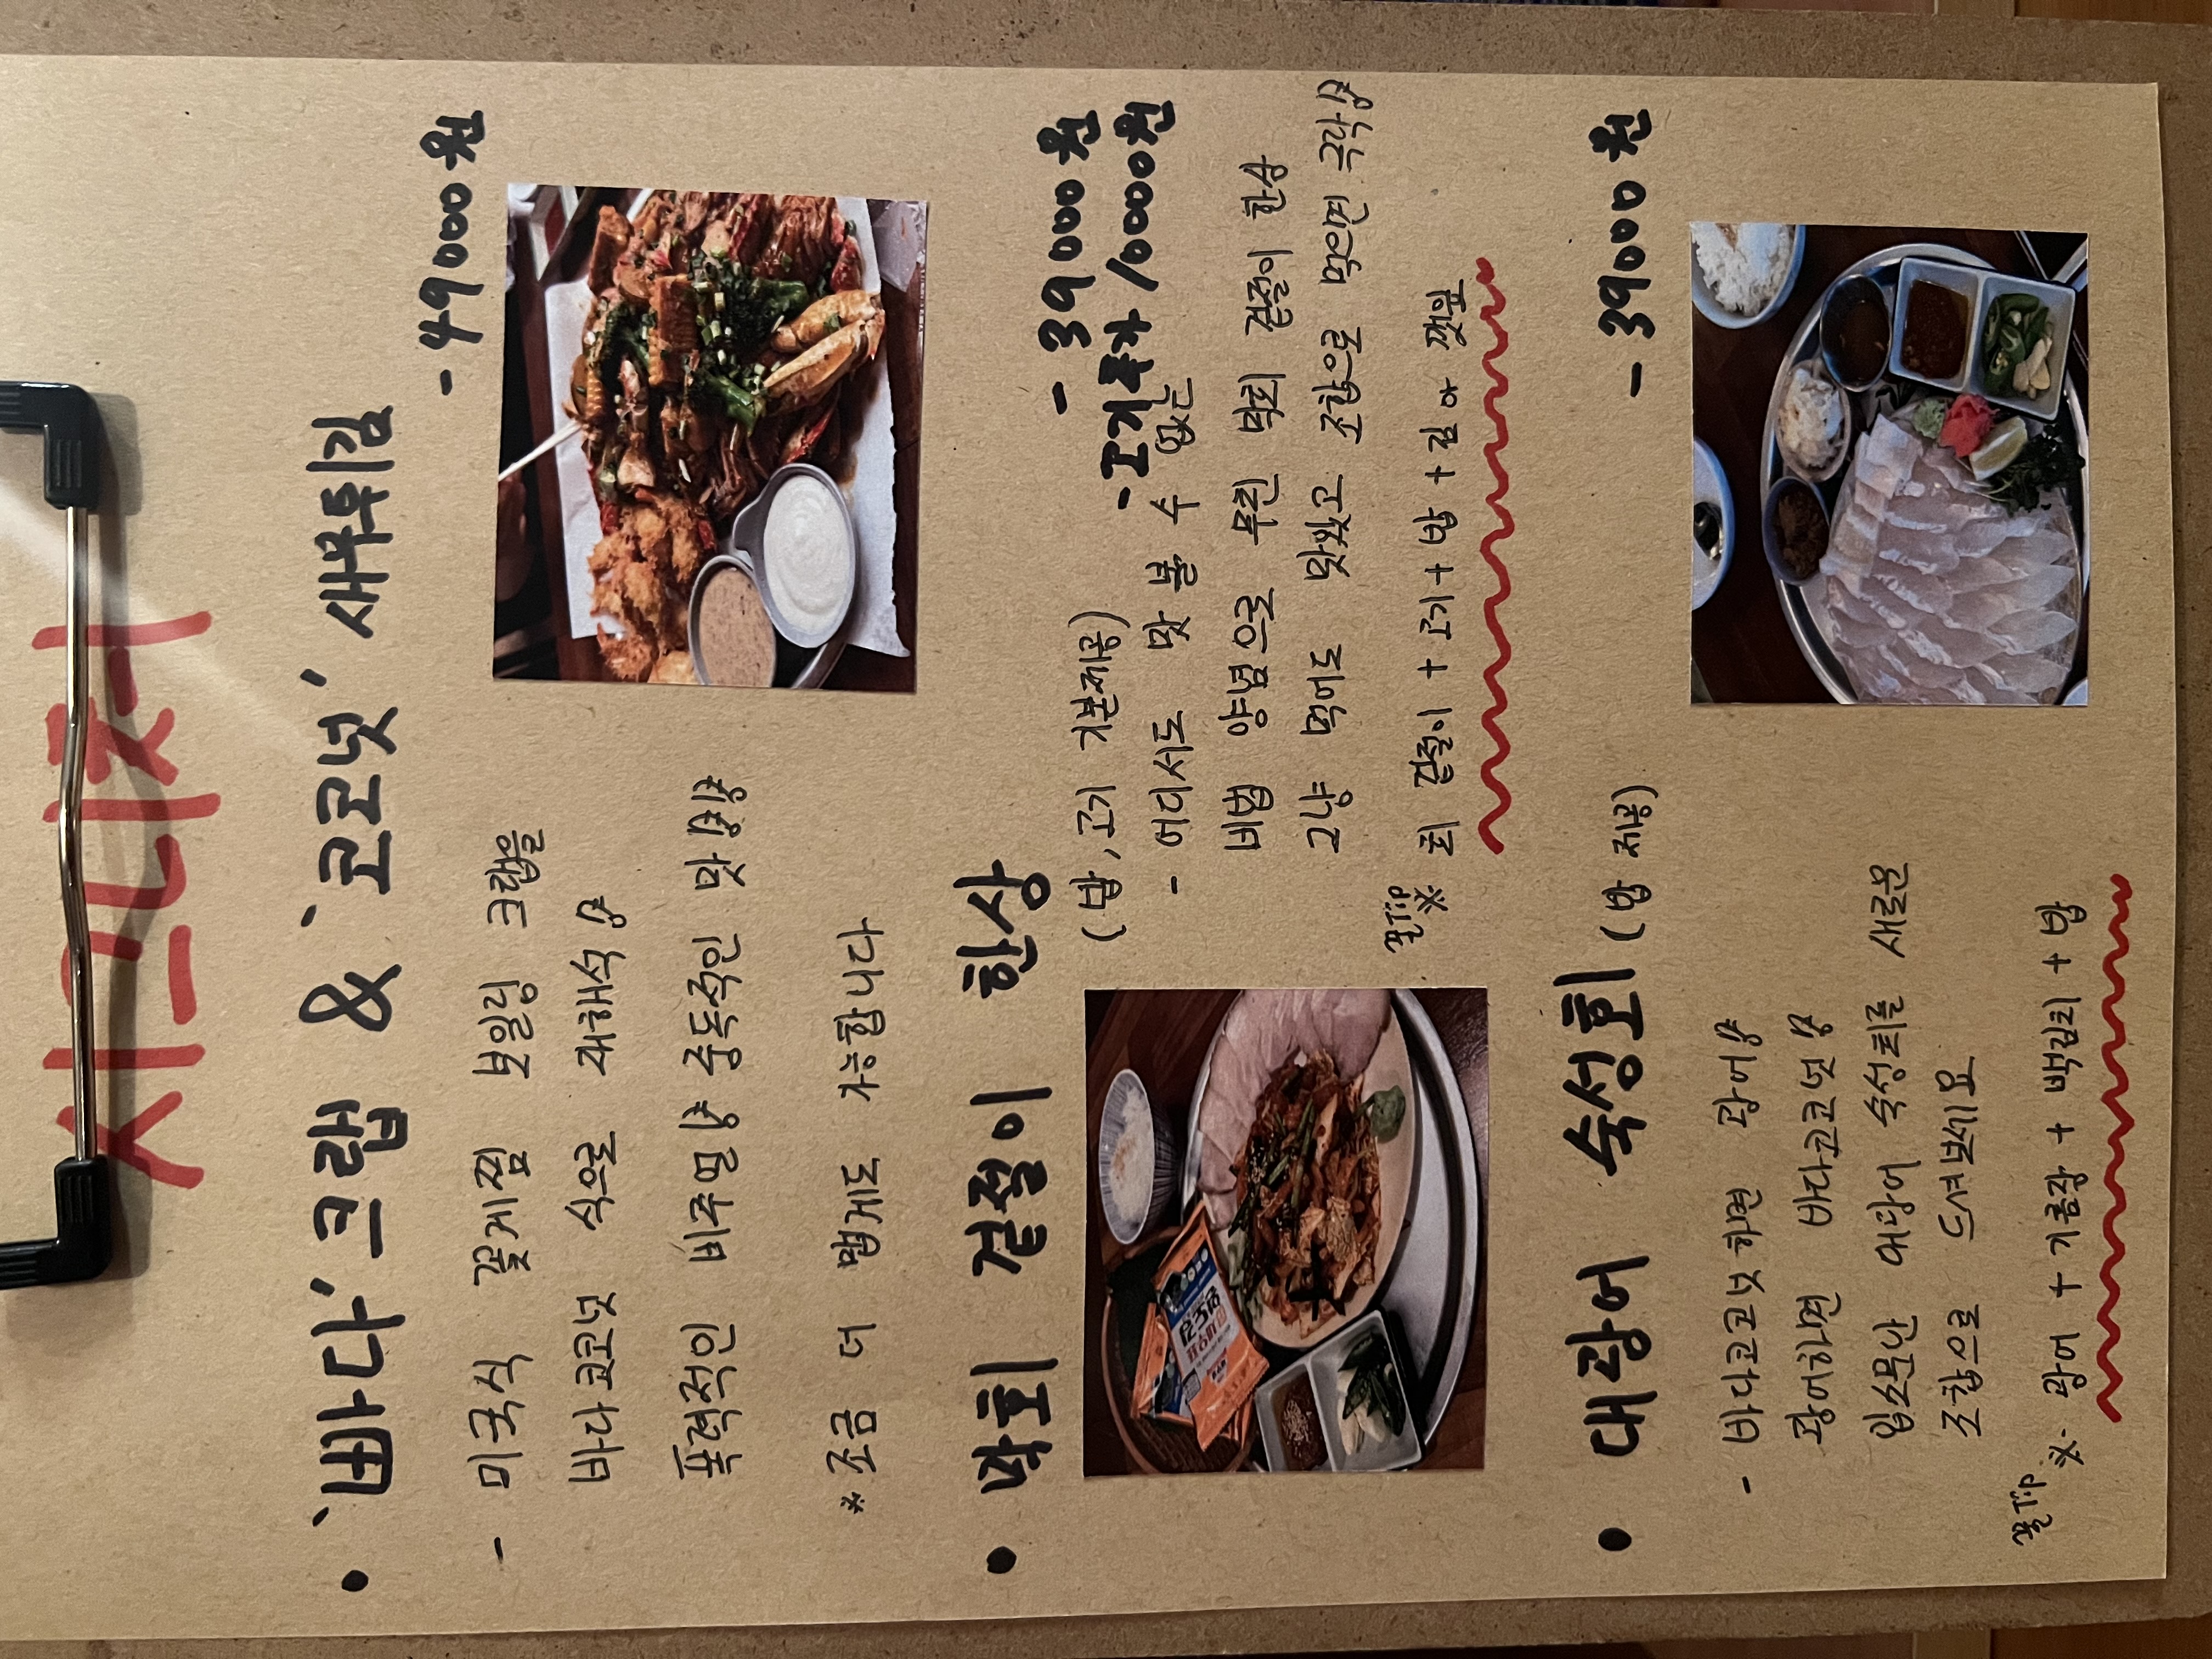 시그니처
• '바다' 크랩 & '코코넛' 새우튀김
- 49000원
- 미국식 꽃게찜 보일링 크랩을
바다코코넛 식으로 재해석
폭력적인 비주얼 중독적인 맛
※ 조금 더 맵게도 가능합니다
• 막회 겉절이 한상
- 39000원
(밥, 고기 기본제공)
- 고기추가 10000원
- 어디서도 맛 볼 수 없는
비법 양념으로 무친 막회 겉절이 한상
그냥 먹어도 맛있고 조합으로 먹으면 극락
꿀Tip
※ 회 겉절이 + 고기 + 밥 + 김 or 깻잎
• 대광어 숙성회 (밥 제공)
- 39000원
- 바다코코넛하면 광어
광어하면 바다코코넛
입소문난 대광어 숙성회를 새로운
조합으로 드셔보세요
꿀Tip
※- 광어 + 기름장 + 백김치 + 밥